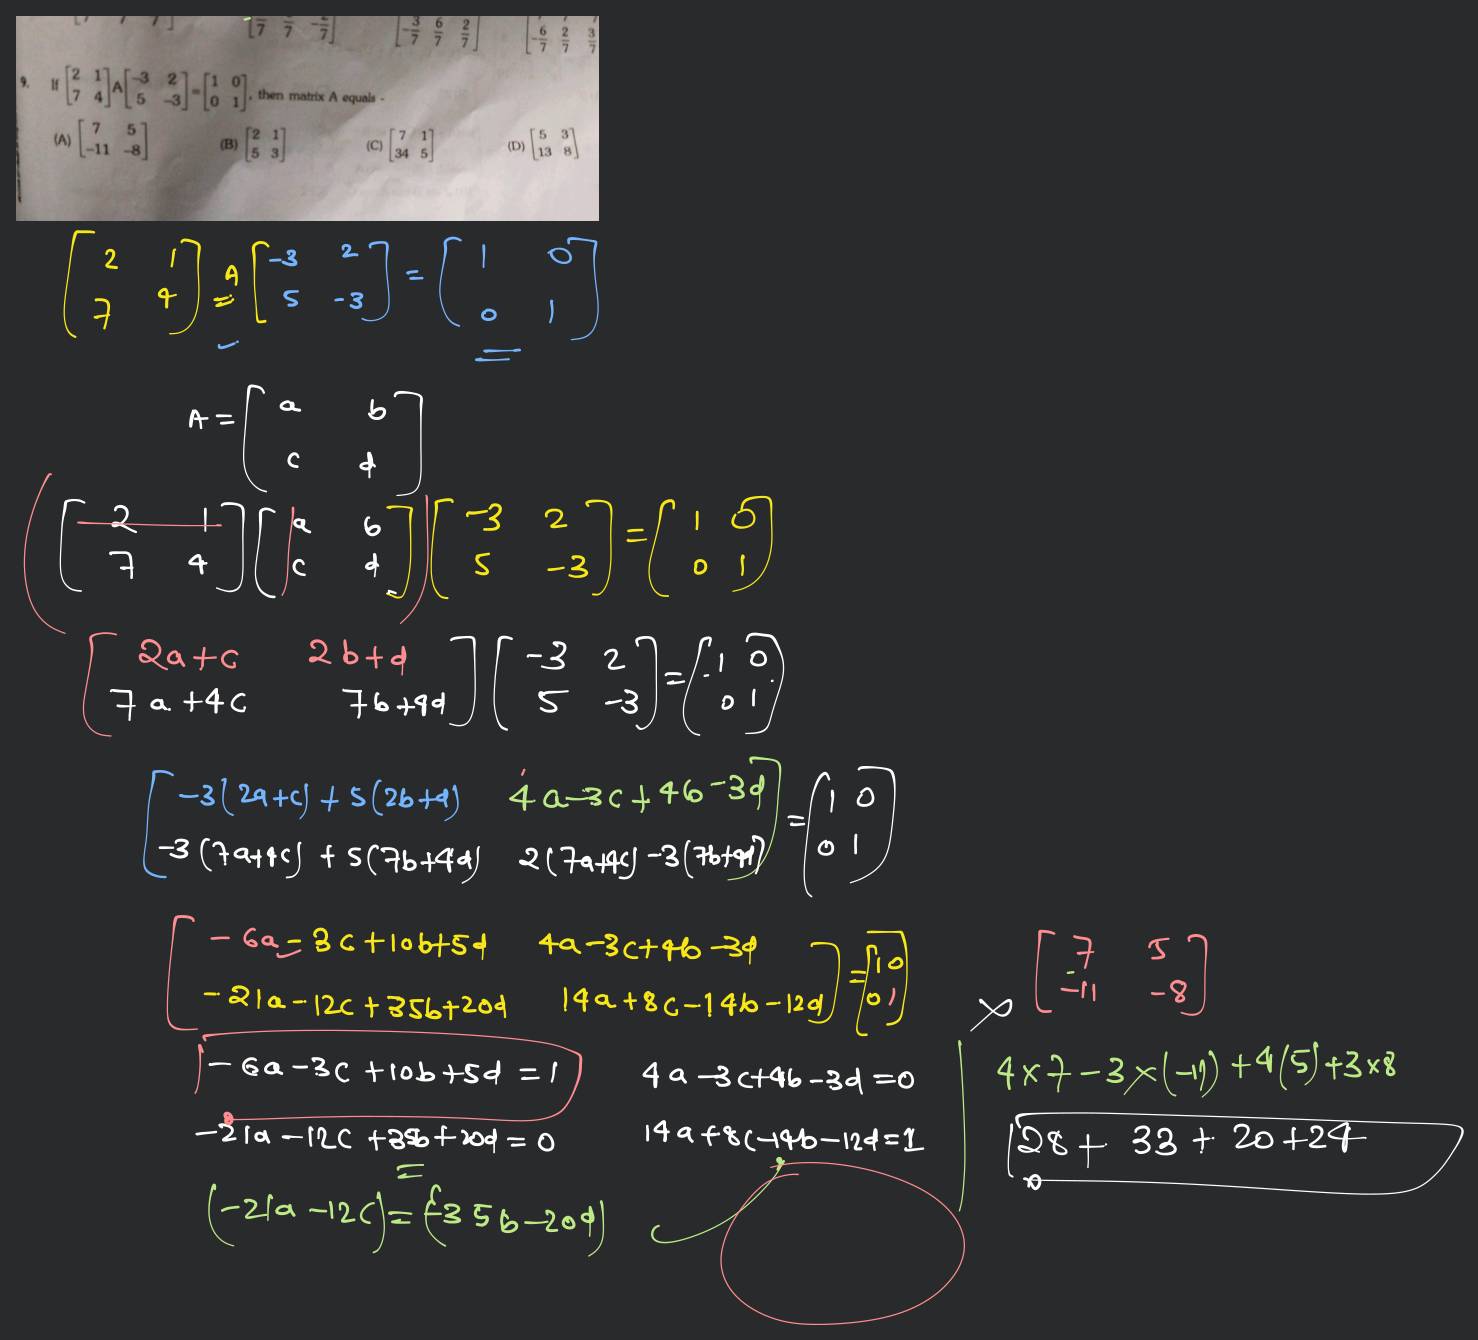 9. If [2 1 7 4] A [-3 2 5 -3] = [1 0 0 1], then matrix A equals -
(A) [7 5 -11 -8] (B) [2 1 5 3] (C) [7 1 34 5] (D) [5 3 13 8]
[2 1 7 4] A [-3 2 5 -3] = [1 0 0 1]
A = [a b c d]
([2 1 7 4] [a b c d]) [-3 2 5 -3] = [1 0 0 1]
[2a+c 2b+d 7a+4c 7b+4d] [-3 2 5 -3] = [1 0 0 1]
[-3(2a+c) + 5(2b+d) 4a-3c+4b-3d
-3(7a+4c) + 5(7b+4d) 2(7a+4c)-3(7b+4d)] = [1 0 0 1]
[-6a-3c+10b+5d 4a-3c+4b-3d
-21a-12c+35b+20d 14a+8c-14b-12d] = [1 0 0 1]
-6a-3c+10b+5d = 1 4a-3c+4b-3d=0
-21a-12c+35b+20d = 0 14a+8c-14b-12d=1
(-21a-12c) = (-35b-20d)
[7 5 -11 -8]
4×7-3×(-11)+4(5)+3×8
28+33+20+24